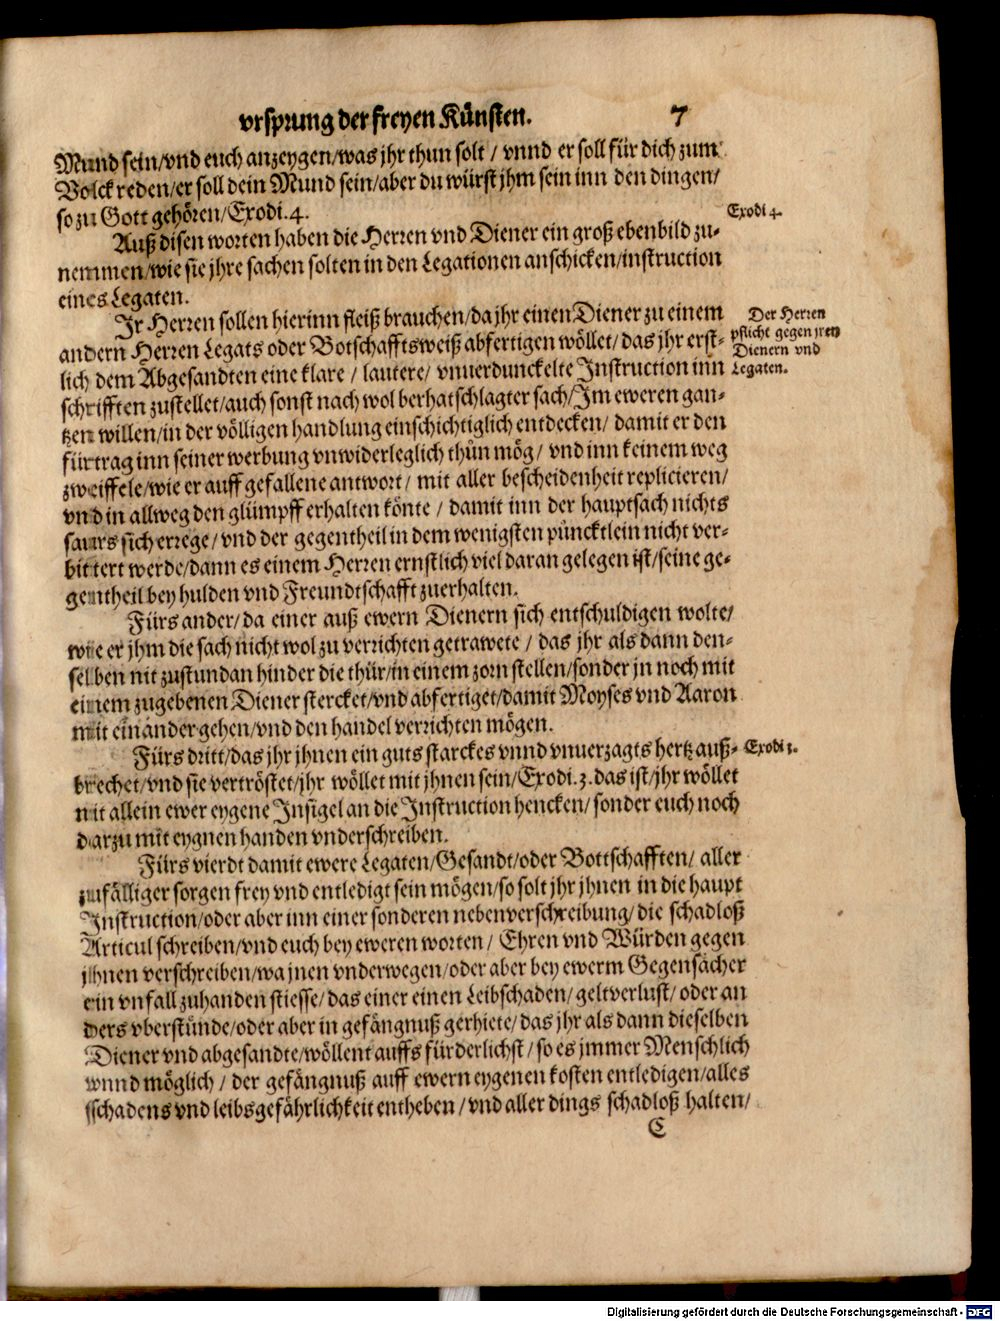 vrsprung der freyen Künsten. 7
Mund sein/vnd euch anzeygen/was jhr thun solt / vnnd er soll für dich zum
Volck reden/er soll dein Mund sein/aber du würst jhm sein inn den dingen/
so zu Gott gehören/Exodi. 4.
Exodi 4.
Auß disen worten haben die Herren vnd Diener ein groß ebenbild zu-
nemmen/wie sie jhre sachen solten in den Legationen anschicken/instruction
eines Legaten.
Ir Herren sollen hierinn fleiß brauchen/da jhr einen Diener zu einem
andern Herren Legats oder Botschafftsweiß abfertigen wöllet/das jhr erst-
lich dem Abgesandten eine klare / lautere/ vnuerdunckelte Instruction inn
schrifften zustellet/auch sonst nach wol berhatschlagter sach/Im eweren gan-
tzen willen/in der völligen handlung einschichtiglich entdecken/ damit er den
fürtrag inn seiner werbung vnwiderleglich thůn mög/ vnd inn keinem weg
zweiffele/wie er auff gefallene antwort/ mit aller bescheidenheit replicieren/
vnd in allweg den glümpff erhalten könte / damit inn der hauptsach nichts
saurs sich errege/vnd der gegentheil in dem wenigsten püncktlein nicht ver-
bittert werde/dann es einem Herren ernstlich viel daran gelegen ist/seine ge-
gentheil bey hulden vnd Freundtschafft zuerhalten.
Der Herren
pflicht gegen jren
Dienern vnd
Legaten.
Fürs ander/da einer auß ewern Dienern sich entschuldigen wolte/
wie er jhm die sach nicht wol zu verrichten getrawete / das jhr als dann den-
selben nit zustundan hinder die thür/in einem zorn stellen/sonder jn noch mit
einem zugebenen Diener stercket/vnd abfertiget/damit Moyses vnd Aaron
mit einander gehen/vnd den handel verrichten mögen.
Fürs dritt/das jhr jhnen ein guts starckes vnnd vnuerzagts hertz auß-
brechet/vnd sie vertröstet/jhr wöllet mit jhnen sein/Exodi. 3. das ist/jhr wöllet
nit allein ewer eygene Insigel an die Instruction hencken/ sonder euch noch
darzu mit eygnen handen vnderschreiben.
Exodi 3.
Fürs vierdt damit ewere Legaten/Gesandt/oder Bottschafften/ aller
zufälliger sorgen frey vnd entledigt sein mögen/so solt jhr jhnen in die haupt
Instruction/oder aber inn einer sonderen nebenverschreibung/ die schadloß
Articul schreiben/vnd euch bey eweren worten/ Ehren vnd Würden gegen
jhnen verschreiben/wa jnen vnderwegen/oder aber bey ewerm Gegensächer
ein vnfall zuhanden stiesse/das einer einen Leibschaden/geltverlust/oder an
ders vberstünde/oder aber in gefängnuß gerhiete/das jhr als dann dieselben
Diener vnd abgesandte/wöllent auffs fürderlichst/so es jmmer Menschlich
vnnd möglich / der gefängnuß auff ewern eygenen kosten entledigen/alles
schadens vnd leibsgefährlichkeit entheben /vnd aller dings schadloß halten/
C
Digitalisierung gefördert durch die Deutsche Forschungsgemeinschaft - DFG